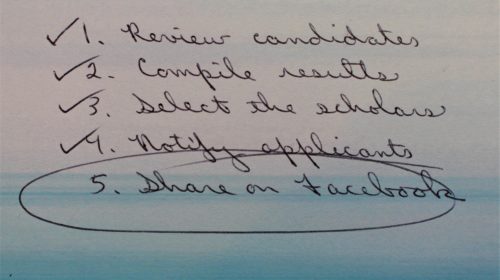 ✓1. Review candidates
✓2. Compile results
✓3. Select the scholars
✓4. Notify applicants
5. Share on Facebook